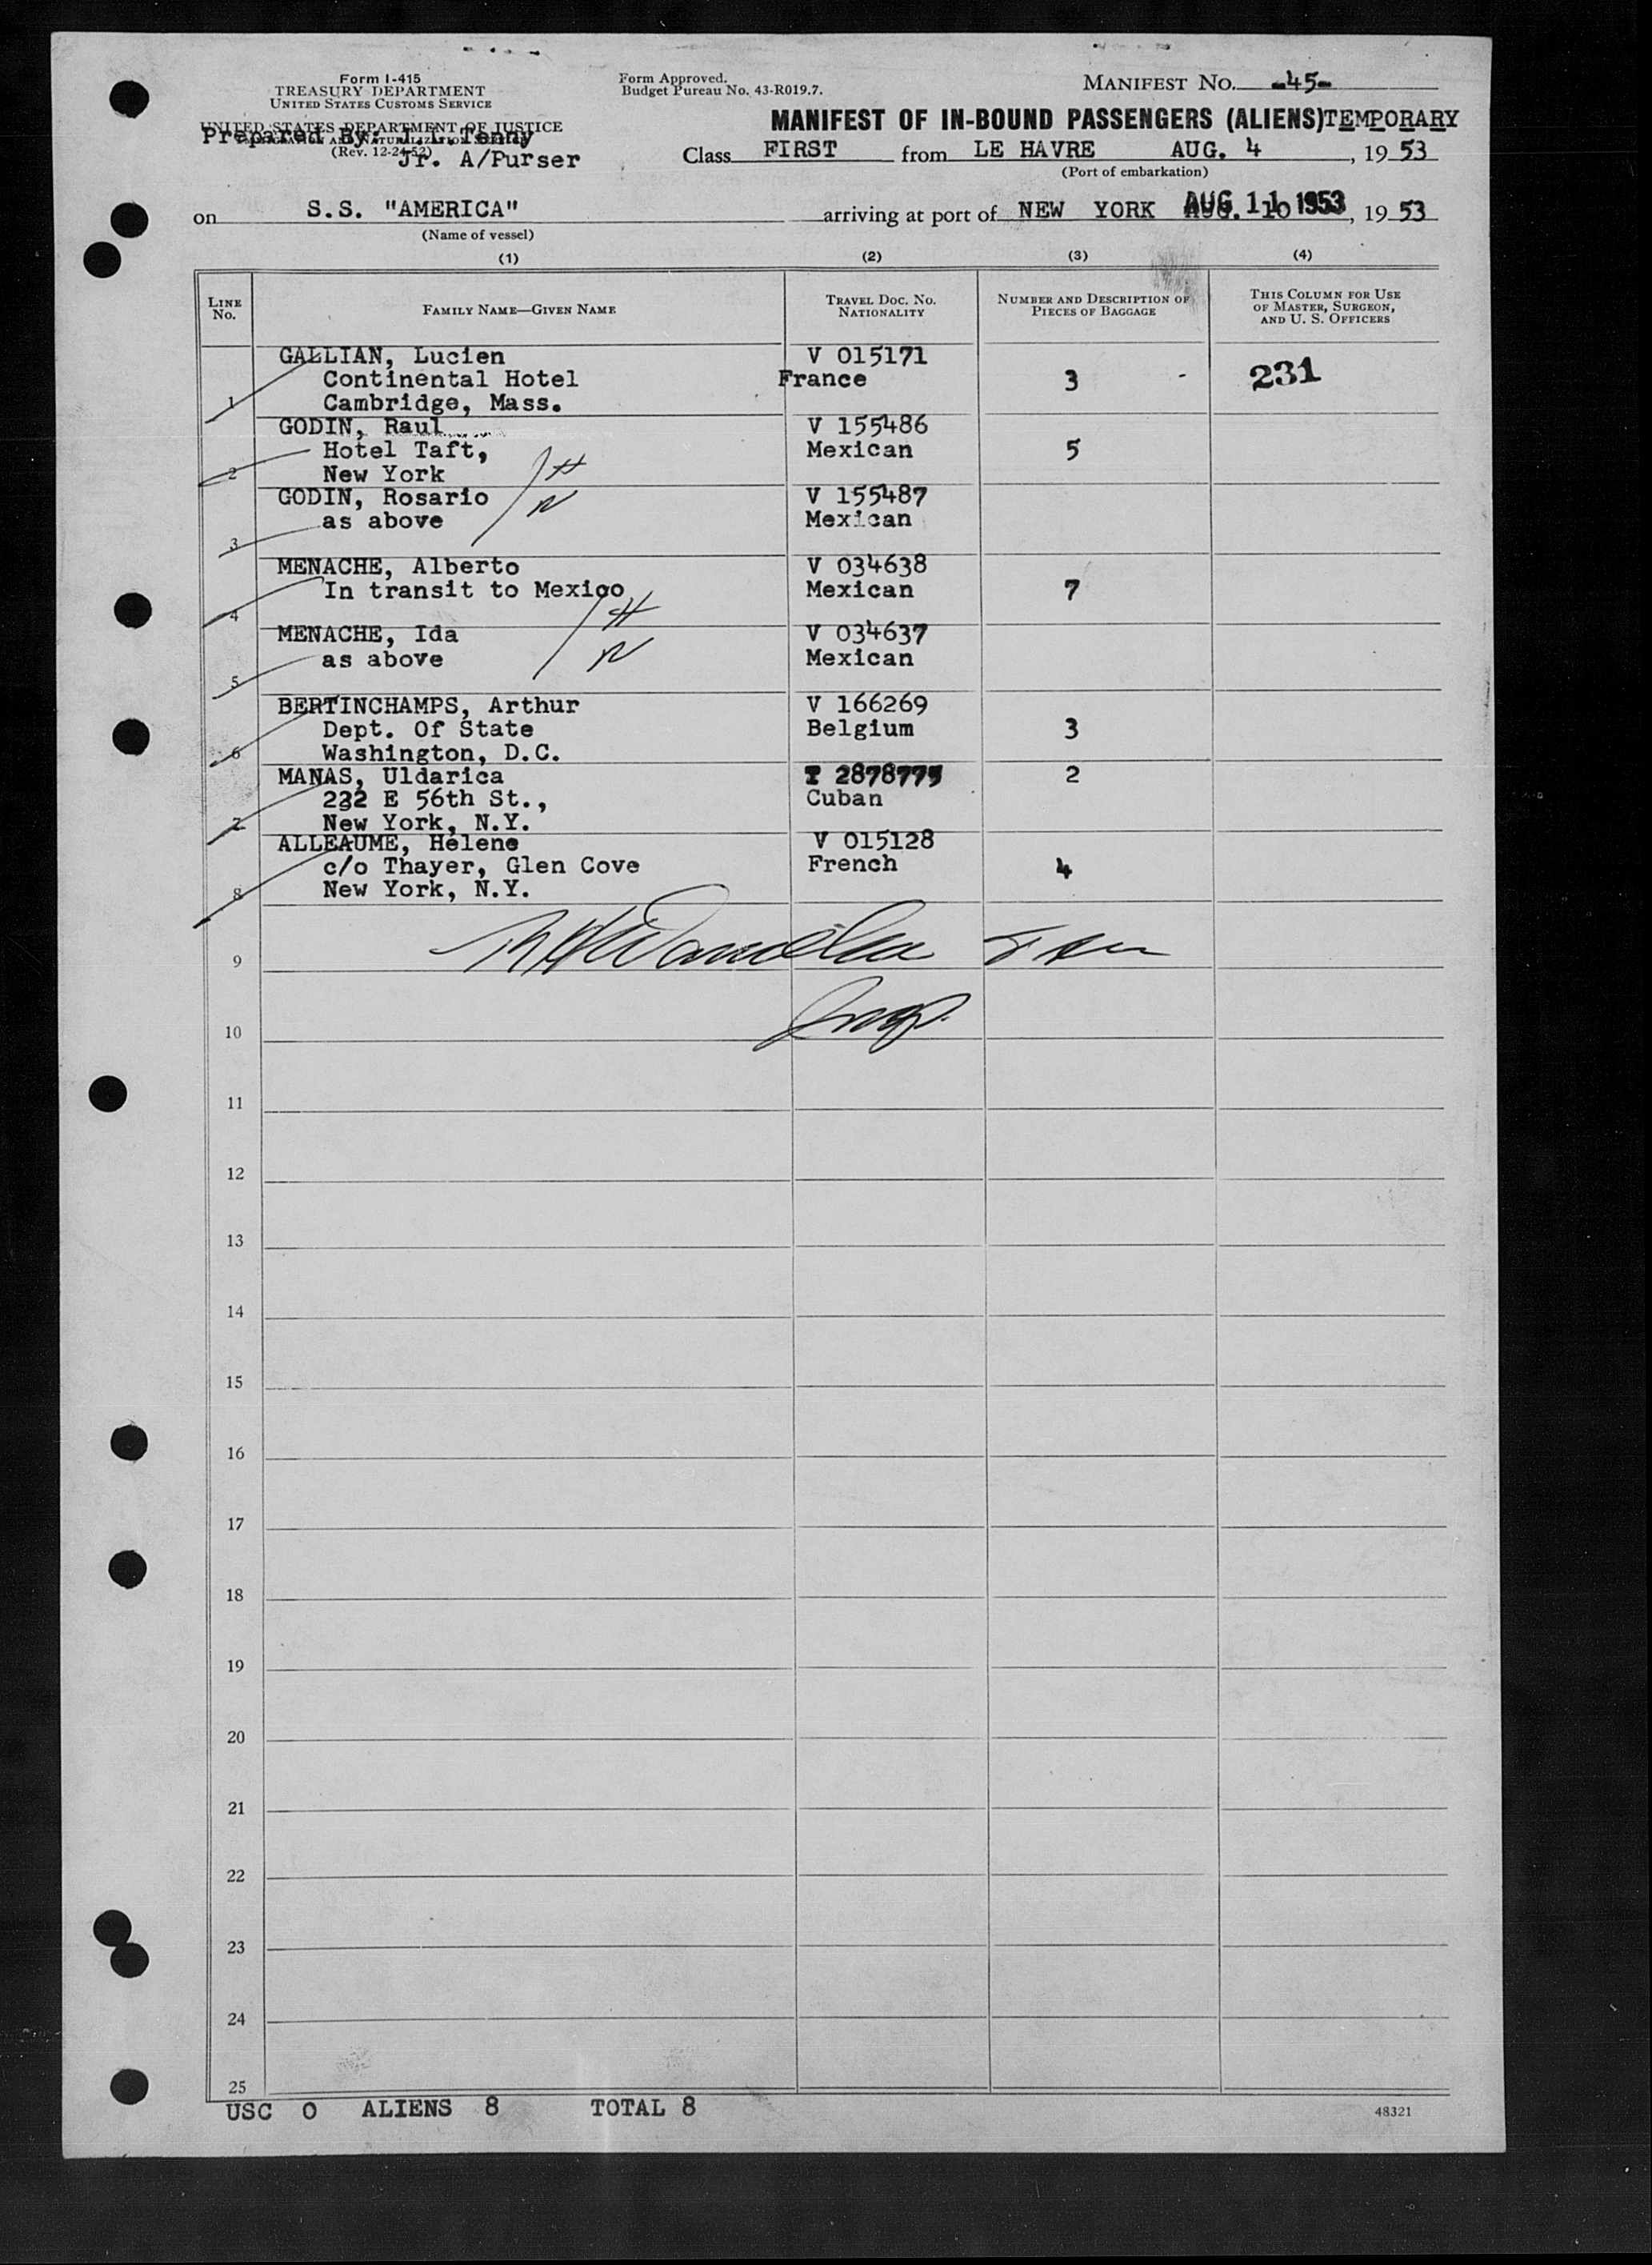 Form I-415
TREASURY DEPARTMENT
UNITED STATES CUSTOMS SERVICE
UNITED STATES DEPARTMENT OF JUSTICE
IMMIGRATION AND NATURALIZATION SERVICE
(Rev. 12-24-52)
Prepared By: Tenny
Jr. A/Purser
Form Approved.
Budget Bureau No. 43-R019.7.
MANIFEST NO. -45-
MANIFEST OF IN-BOUND PASSENGERS (ALIENS) TEMPORARY
Class FIRST from LE HAVRE AUG. 4, 19 53
(Port of embarkation)
on S.S. "AMERICA" arriving at port of NEW YORK AUG. 11 1953, 19 53
(Name of vessel)
(1) (2) (3) (4)
LINE NO. FAMILY NAME—GIVEN NAME TRAVEL DOC. NO. NATIONALITY NUMBER AND DESCRIPTION OF PIECES OF BAGGAGE THIS COLUMN FOR USE OF MASTER, SURGEON, AND U. S. OFFICERS
GALLIAN, Lucien V 015171
Continental Hotel France 3 - 231
1 Cambridge, Mass.
GODIN, Raul V 155486
Hotel Taft, Mexican 5
2 New York H
GODIN, Rosario V 155487
as above W Mexican
3
MENACHE, Alberto V 034638
In transit to Mexico Mexican 7
4 H
MENACHE, Ida V 034637
as above W Mexican
5
BERTINCHAMPS, Arthur V 166269
Dept. Of State Belgium 3
6 Washington, D.C.
MANAS, Uldarica I 2878775 2
232 E 56th St., Cuban
7 New York, N.Y.
ALLEAUME, Helene V 015128
c/o Thayer, Glen Cove French 4
8 New York, N.Y.
9
10 Insp.
11
12
13
14
15
16
17
18
19
20
21
22
23
24
25
USC 0 ALIENS 8 TOTAL 8
48321